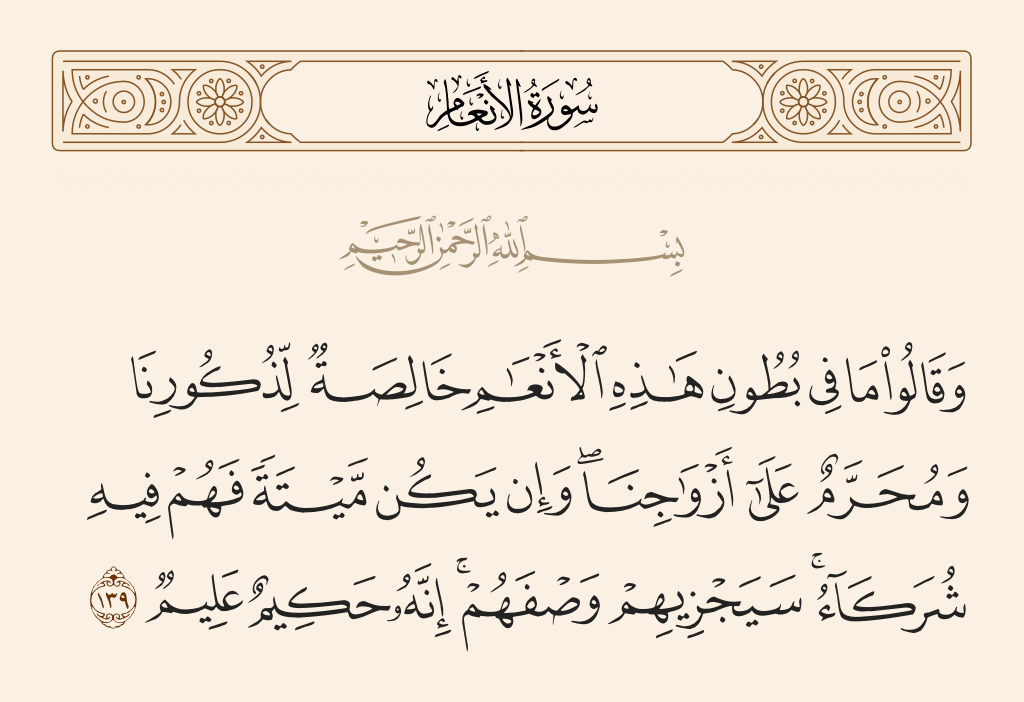 سُورَةُ الأَنْعَامِ
بِسْمِ ٱللَّهِ ٱلرَّحْمَٰنِ ٱلرَّحِيمِ
وَقَالُوا۟ مَا فِى بُطُونِ هَـٰذِهِ ٱلْأَنْعَـٰمِ خَالِصَةٌ لِّذُكُورِنَا
وَمُحَرَّمٌ عَلَىٰٓ أَزْوَٰجِنَا ۖ وَإِن يَكُن مَّيْتَةً فَهُمْ فِيهِ
شُرَكَآءُ ۚ سَيَجْزِيهِمْ وَصْفَهُمْ ۚ إِنَّهُۥ حَكِيمٌ عَلِيمٌ ١٣٩